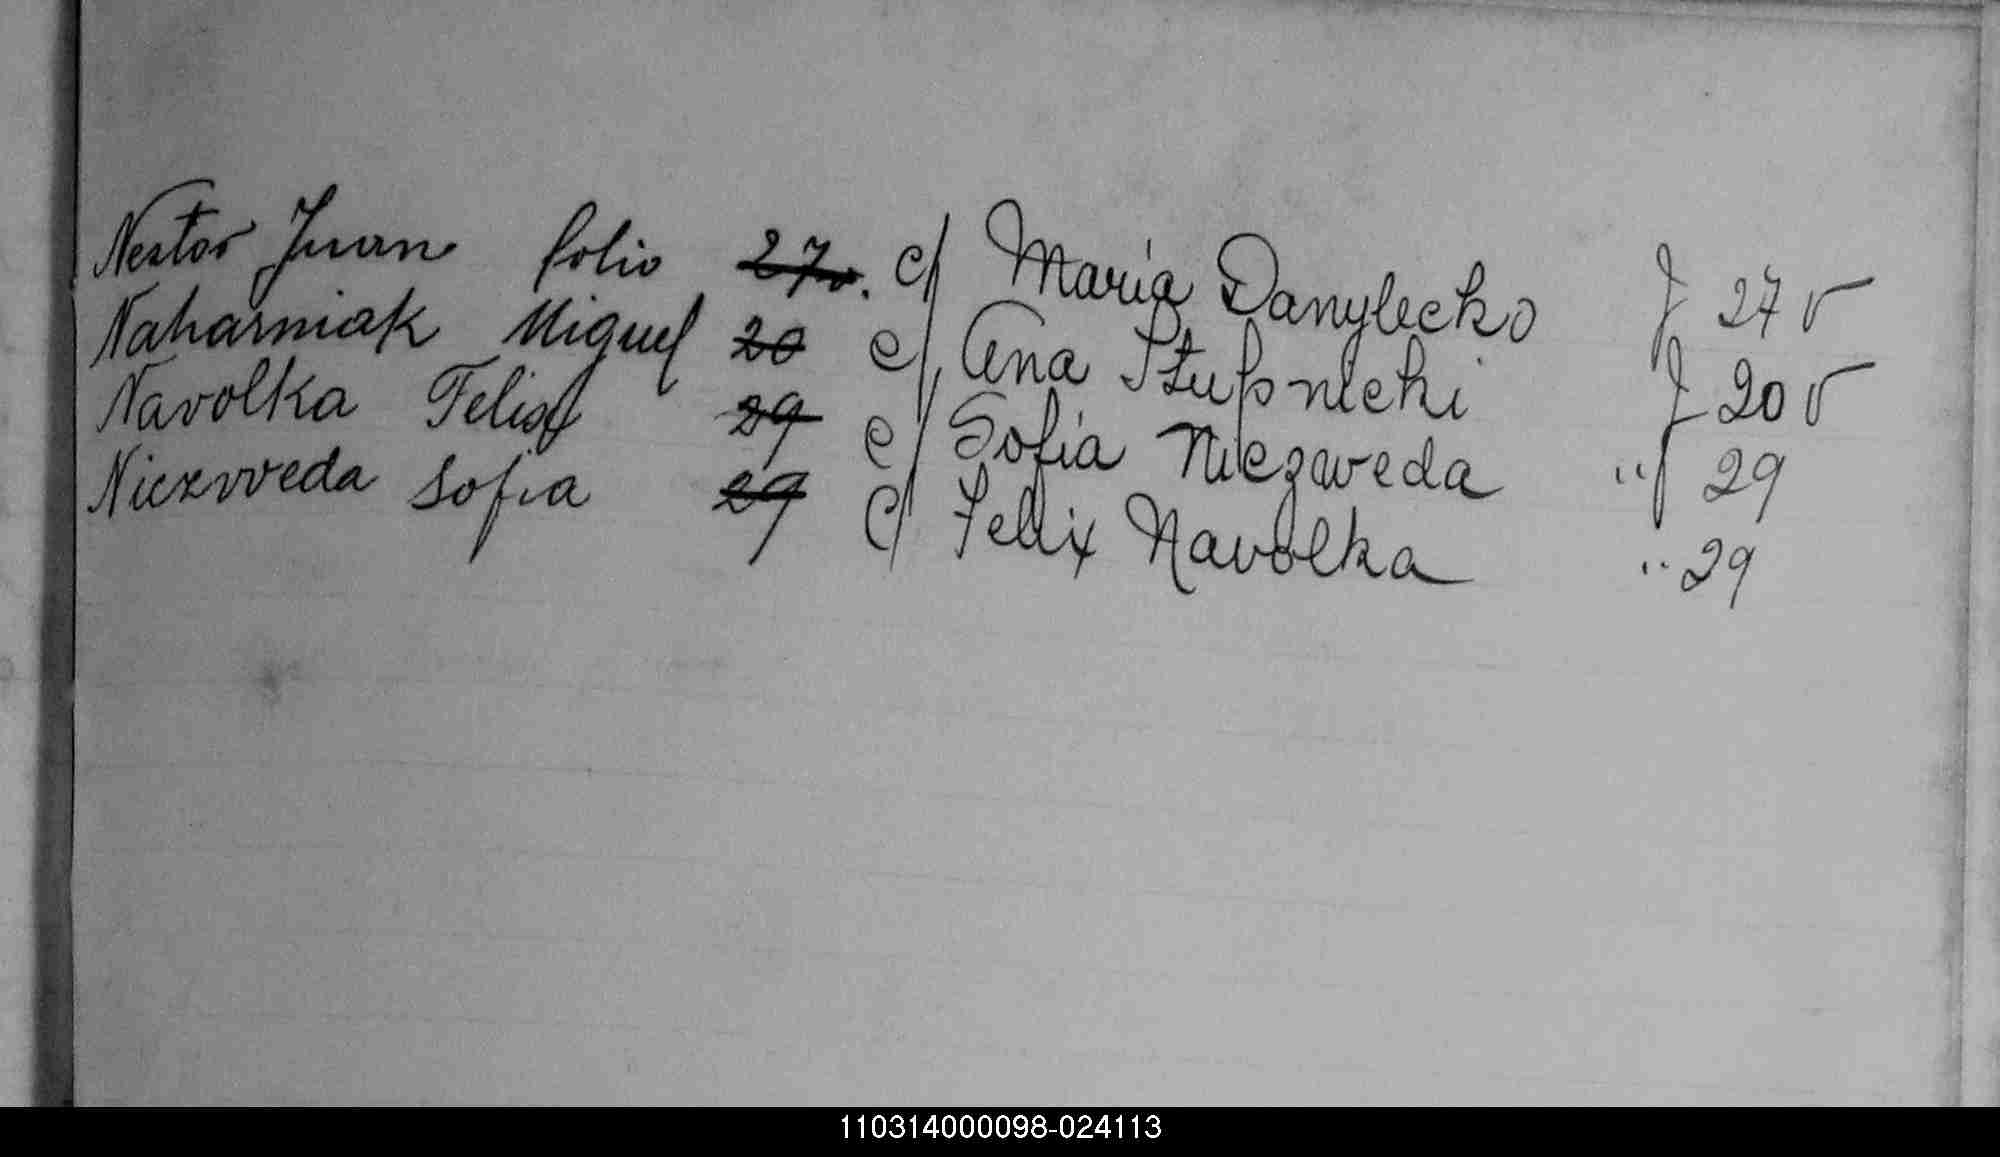 Nestor Juan folio 27v. c/ María Danylecko f 27 v
Naharniak Miguel 20 c/ Ana Stupnicki f 20 v
Navolka Felix 29 c/ Sofia Niezweda " f 29
Niezwveda Sofia 29 c/ Felix Navolka " 29
110314000098-024113